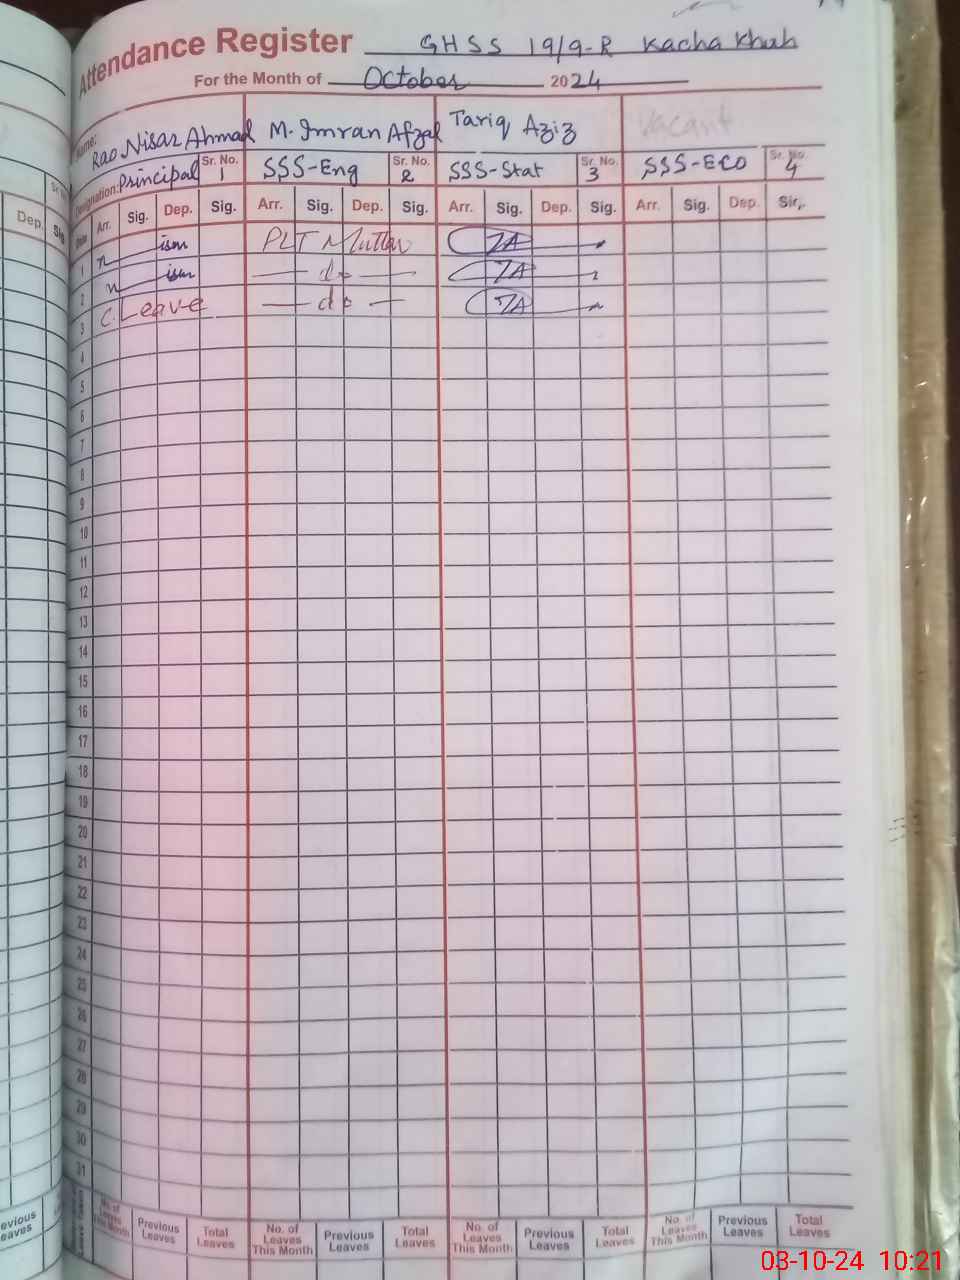 Attendance Register GHSS 19/9-R Kacha Khuh
For the Month of October 2024
Name: Rao Nisar Ahmad M. Imran Afzal Tariq Aziz Vacant
Designation: Principal Sr. No. 1 SSS-Eng Sr. No. 2 SSS-Stat Sr. No. 3 SSS-ECO Sr. No. 4
Dep. Sig. Date Arr. Sig. Dep. Sig. Arr. Sig. Dep. Sig. Arr. Sig. Dep. Sig. Arr. Sig. Dep. Sig.
1 PLT TA
2 do TA
3 C. Leave do TA
4
5
6
7
8
9
10
11
12
13
14
15
16
17
18
19
20
21
22
23
24
25
26
27
28
29
30
31
No. of Leaves This Month Previous Leaves Total Leaves No. of Leaves This Month Previous Leaves Total Leaves No. of Leaves This Month Previous Leaves Total Leaves No. of Leaves This Month Previous Leaves Total Leaves
03-10-24 10:21